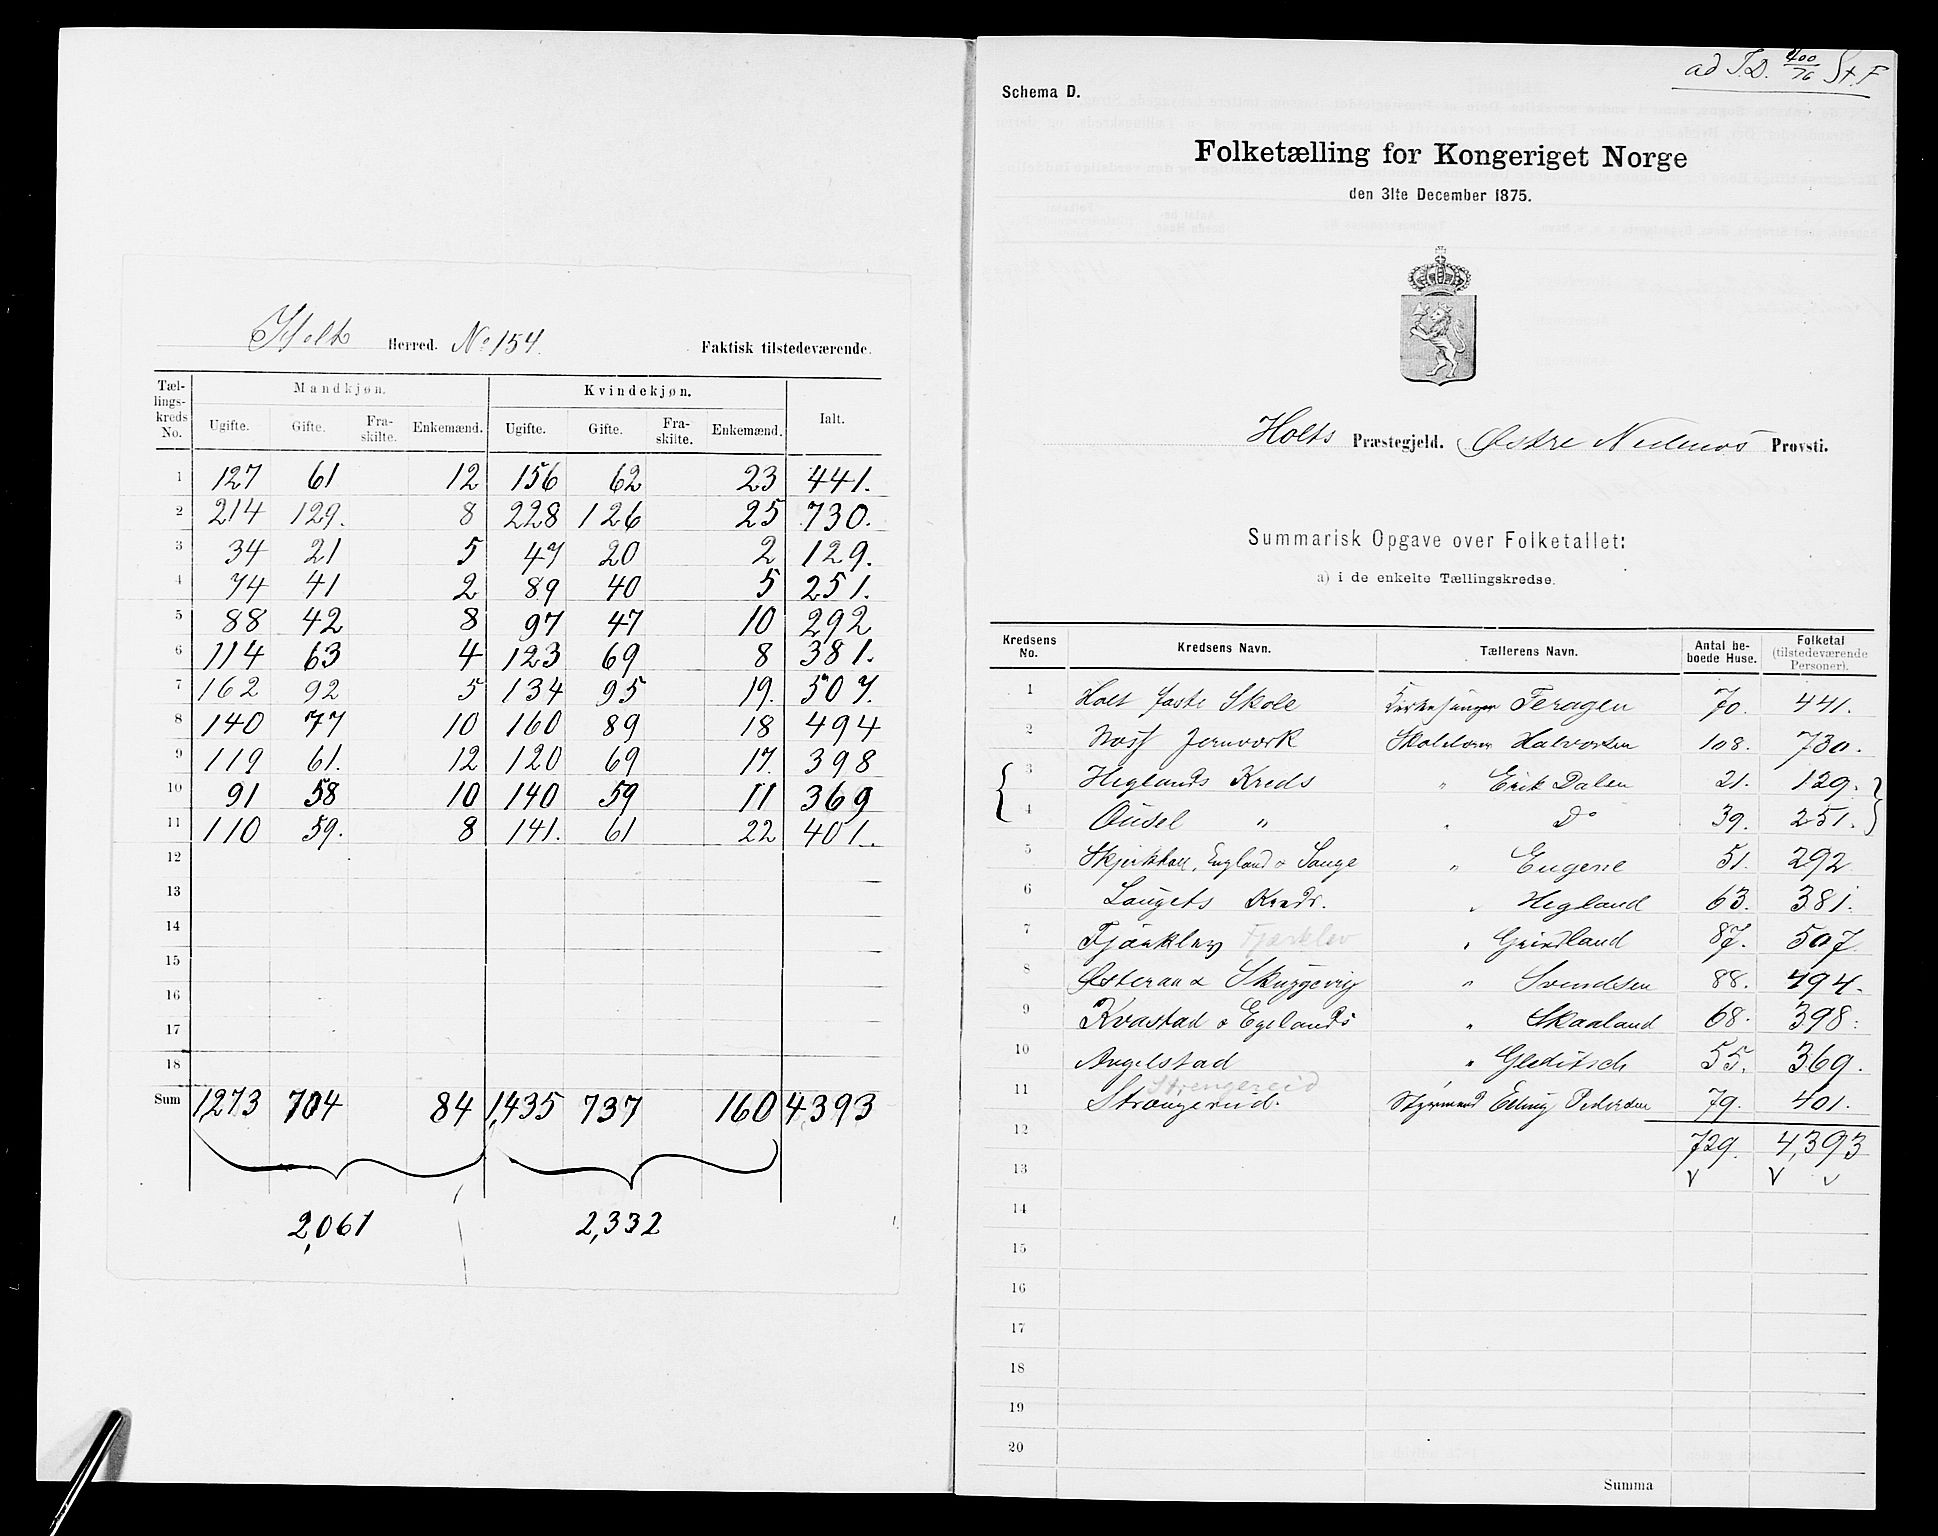 Holt Herred. No 154. Faktisk tilstedeværende.
Tæl-lings-kreds No. Mandkjøn. Kvindekjøn. Ialt.
Ugifte. Gifte. Fra-skilte. Enkemænd. Ugifte. Gifte. Fra-skilte. Enkemænd.
1 127 61 12 156 62 23 441.
2 214 129. 8 228 126 25 730.
3 34 21 5 47 20 2 129.
4 74 41 2 89 40 5 251.
5 88 42 8 97 47 10 292
6 114 63 4 123 69 8 381.
7 162 92 5 134 95 19. 507.
8 140 77 10 160 89 18 494
9 119 61. 12 120 69 17. 398
10 91 58 10 140 59 11 369
11 110 59. 8 141. 61 22 401.
12
13
14
15
16
17
18
Sum 1,273 704 84 1,435 737 160 4393
2,061 2,332
ad J.D. 400/76 St. F
Schema D.
Folketælling for Kongeriget Norge
den 31te December 1875.
Holts Præstegjeld. Østre Nedenæs Provsti.
Summarisk Opgave over Folketallet:
a) i de enkelte Tællingskredse.
Kredsens No. Kredsens Navn. Tællerens Navn. Antal be-boede Huse. Folketal (tilstedeværende Personer).
1 Holt faste Skole Kirkesanger Feragen 70. 441.
2 Næs Jernværk Skolelærer Halvorsen 108. 730.
3 Heglands Kreds " Erik Dalen 21. 129.
4 Ousel " " Do 39. 251.
5 England & Songe " Eugene 51. 292
6 Laugets Kreds. " Hegland 63. 381.
7 Fjærklev Fjærklev " Grindland 87. 507.
8 Østeraa & Skuggevig " Svendsen 88. 494.
9 Kvastad & Egelands " Skaaland 68. 398.
10 Angelstad " Gleditsch 55. 369.
Strengereid
11 Strængereid. Styrmand Erling Pedersen 79. 401.
12 729. 4,393
13
14
15
16
17
18
19
20
Summa